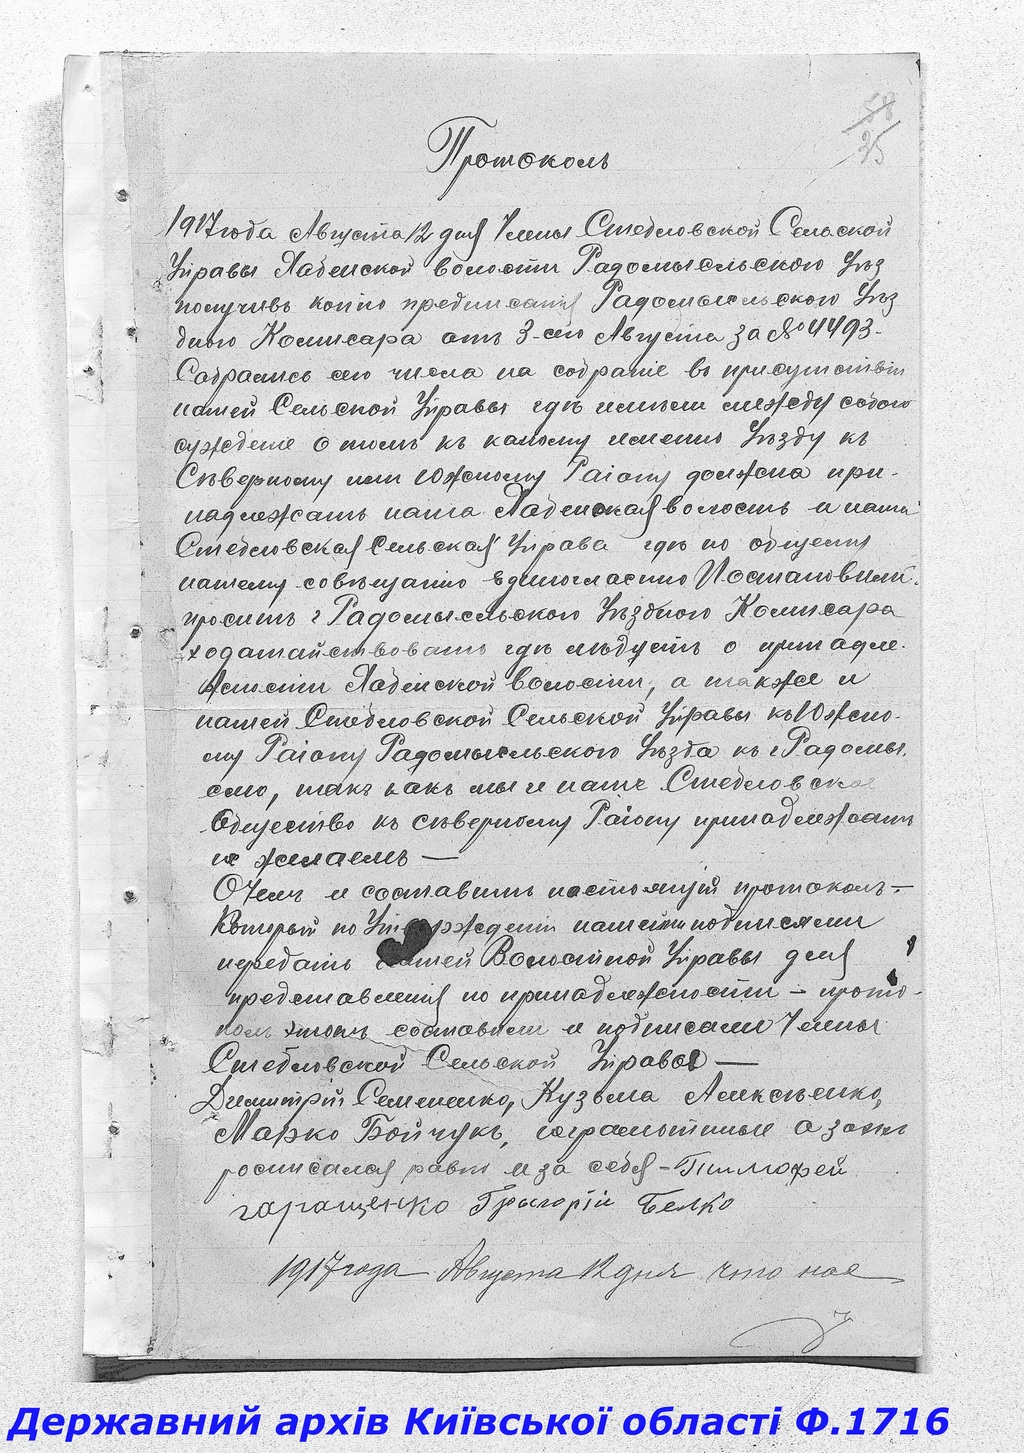 58
25
Протоколъ
1917 года Августа 12 дня Члены Стебловской Сельской
Управы Хабенской волости Радомысльскаго Уѣз
получивъ копію предписанія Радомысльского Уѣз
дного Комисара отъ 3-его Августа за № 4493-
Собрались сего числа на собраніе въ присутствіи
нашей Сельской Управы гдѣ имѣли между собою
сужденіе о томъ къ какому именно Уѣзду къ
Сѣверному или Южному Раіону должна при-
надлежать наша Хабенская волость и наша
Стебловская Сельская Управа гдѣ по общему
нашему совѣщанію единогласно Постановили.
просить г Радомысльского Уѣздного Комисара
ходатайствовать гдѣ слѣдуетъ о принадле-
жности Хабенской волости, а также и
нашей Стебловской Сельской Управы къ Южно-
му Раіону Радомысльского Уѣзда къ г Радомы.
слю, такъ какъ мы и наше Стебловское
Общество къ сѣверному Раіону принадлежать
не желаемъ —
О чемъ и составить настоящій протоколъ —
который по Утвержденіи нашими подписями
передать нашей Волостной Управы для
представленія по принадлежности — прото-
колъ этотъ составили и подписали Члены
Стебловской Сельской Управы —
Димитрій Семененко, Кузьма Алексѣенко,
Марко Бойчукъ, неграмотные а за них
росписался равно и за себя - Тимофей
гаращенко Грыгорій Белко
1917 года Августа 12 дня что нас
Державний архів Київської області Ф.1716